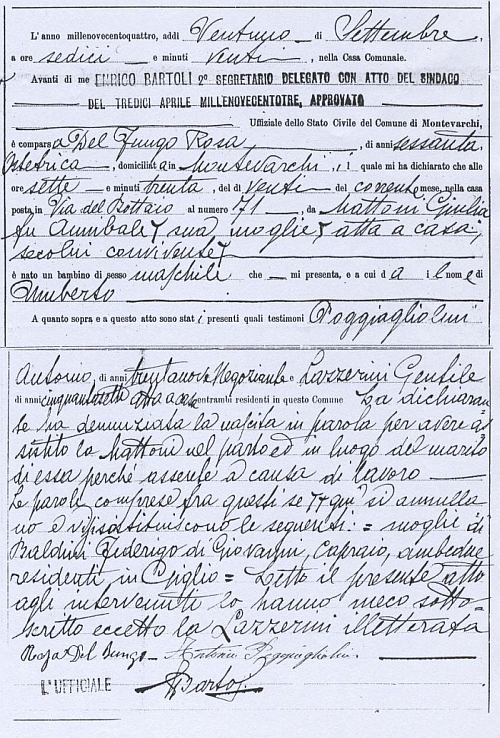 L'anno millenovecentoquattro, addì Ventuno di Settembre,
a ore sedici e minuti venti, nella Casa Comunale.
Avanti di me ENRICO BARTOLI 2º SEGRETARIO DELEGATO CON ATTO DEL SINDACO
DEL TREDICI APRILE MILLENOVECENTOTRE, APPROVATO
Uffiziale dello Stato Civile del Comune di Montevarchi,
è comparsa Del Fungo Rosa, di anni sessanta
Ostetrica, domiciliata in Montevarchi, i quale mi ha dichiarato che alle
ore sette e minuti trenta, del dì venti del corrente mese, nella casa
posta in Via del Bottaio al numero 71, da Mattoni Giulia
fu Annibale, sua moglie, atta a casa,
secolui convivente,
è nato un bambino di sesso maschile che mi presenta, e a cui da il nome di
Umberto
A quanto sopra e a questo atto sono stati presenti quali testimoni Poggiagliolmi
Antonio, di anni trentanove Negoziante e Lazzerini Gentile
di anni cinquantasette atta a casa entrambi residenti in questo Comune La dichiaran-
te ha denunziata la nascita in parola per avere as
sistito la Mattoni nel parto ed in luogo del marito
di essa perché assente a causa di lavoro
Le parole comprese fra questi segni si annulla
no e vi si sostituiscono le seguenti: = moglie di
Balducci Federigo di Giovanni, capraio, ambedue
residenti in = Letto il presente atto
agli intervenuti lo hanno meco sotto-
scritto eccetto la Lazzerini illetterata
Rosa Del Fungo Antonio Poggiagliolmi
L'UFFICIALE EBartoli